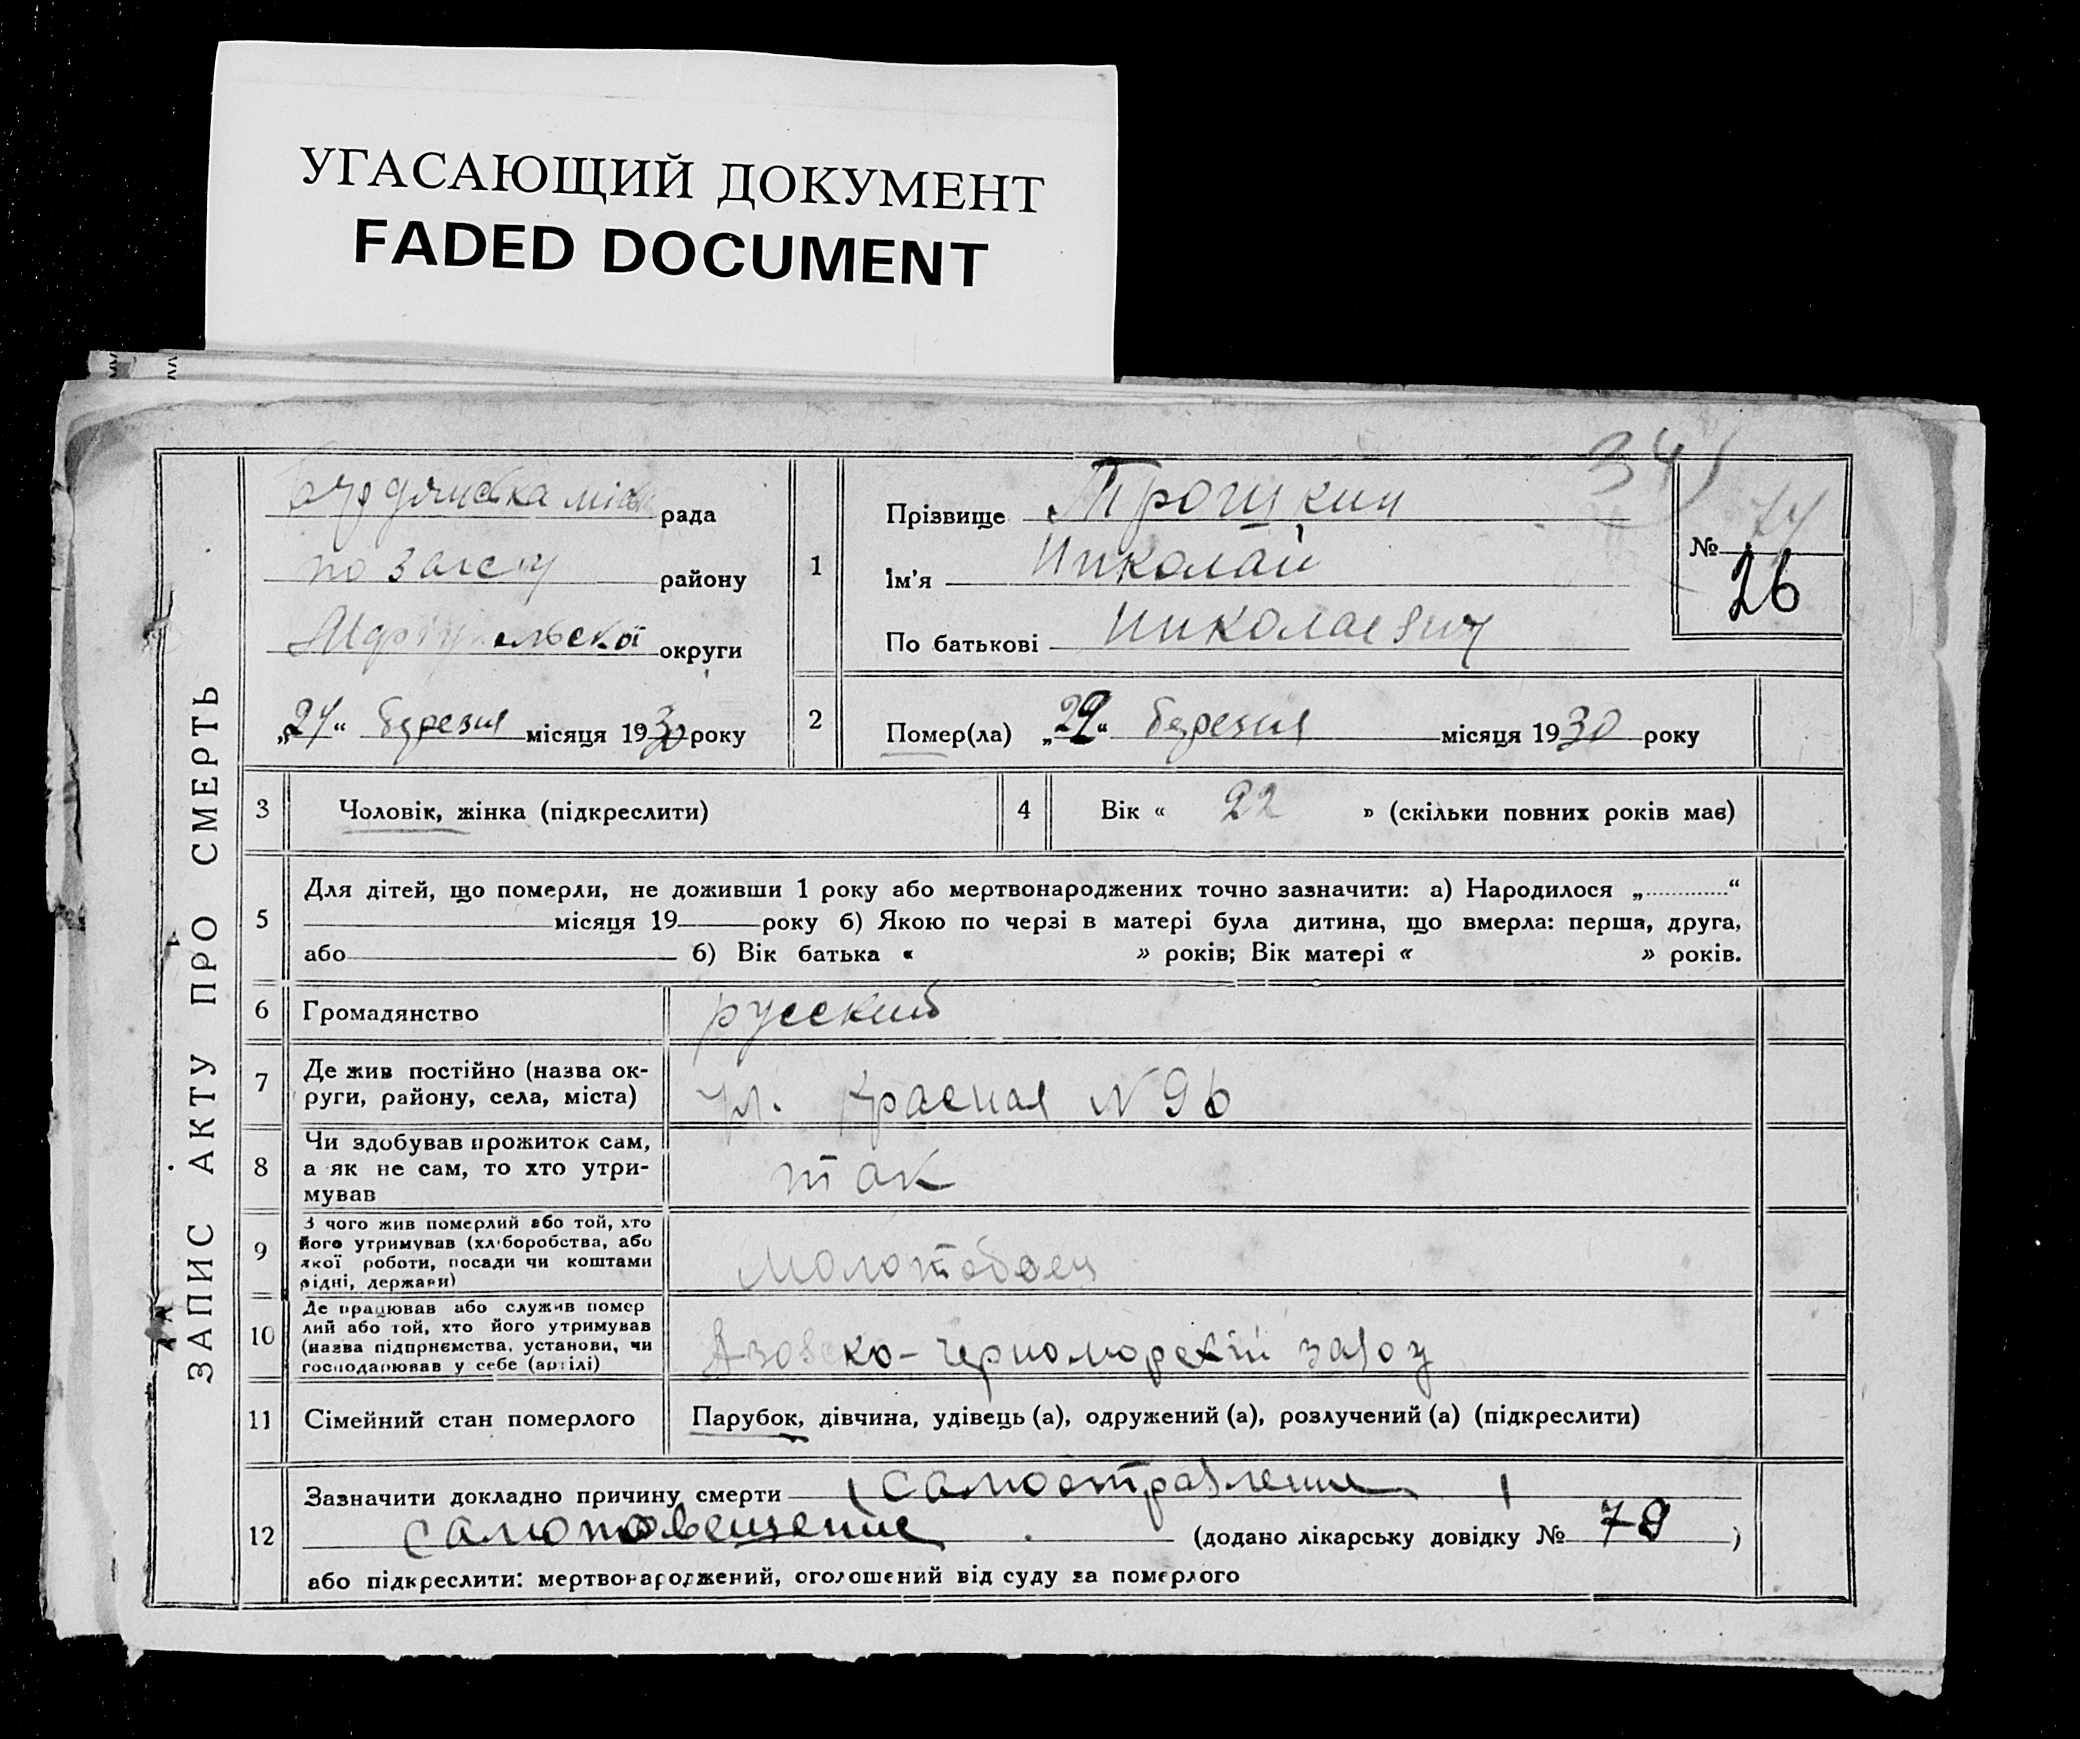 УГАСАЮЩИЙ ДОКУМЕНТ
FADED DOCUMENT
ЗАПИС АКТУ ПРО СМЕРТЬ
34)
рада
по загсу району
Маріупольської округи
„24“ березня місяця 1930 року
1
Прізвище Трошкин
Ім’я Николай
По батькові Николаевич
№ 74
26
2
Помер(ла) „22“ березня місяця 1930 року
3 Чоловік, жінка (підкреслити)
4 Вік « 22 » (скільки повних років має)
5
Для дітей, що померли, не доживши 1 року або мертвонароджених точно зазначити: а) Народилося „ “
місяця 19 року б) Якою по черзі в матері була дитина, що вмерла: перша, друга,
або б) Вік батька « » років; Вік матері « » років.
6 Громадянство русский
7
Де жив постійно (назва ок-
руги, району, села, міста) ул. Красная N 96
8
Чи здобував прожиток сам,
а як не сам, то хто утри-
мував
так
9
З чого жив померлий або той, хто
його утримував (хліборобства, або
якої роботи, посади чи коштами
рідні, держави)
молотобоец
10
Де працював або служив помер
лий або той, хто його утримував
(назва підприємства, установи, чи
господарював у себе (артілі)
Азовско-Черноморскій завод
11 Сімейний стан померлого
Парубок, дівчина, удівець (а), одружений (а), розлучений (а) (підкреслити)
12
Зазначити докладно причину смерти (самоотравление)
самоповешение (додано лікарську довідку № 78 )
або підкреслити: мертвонароджений, оголошений від суду за померлого